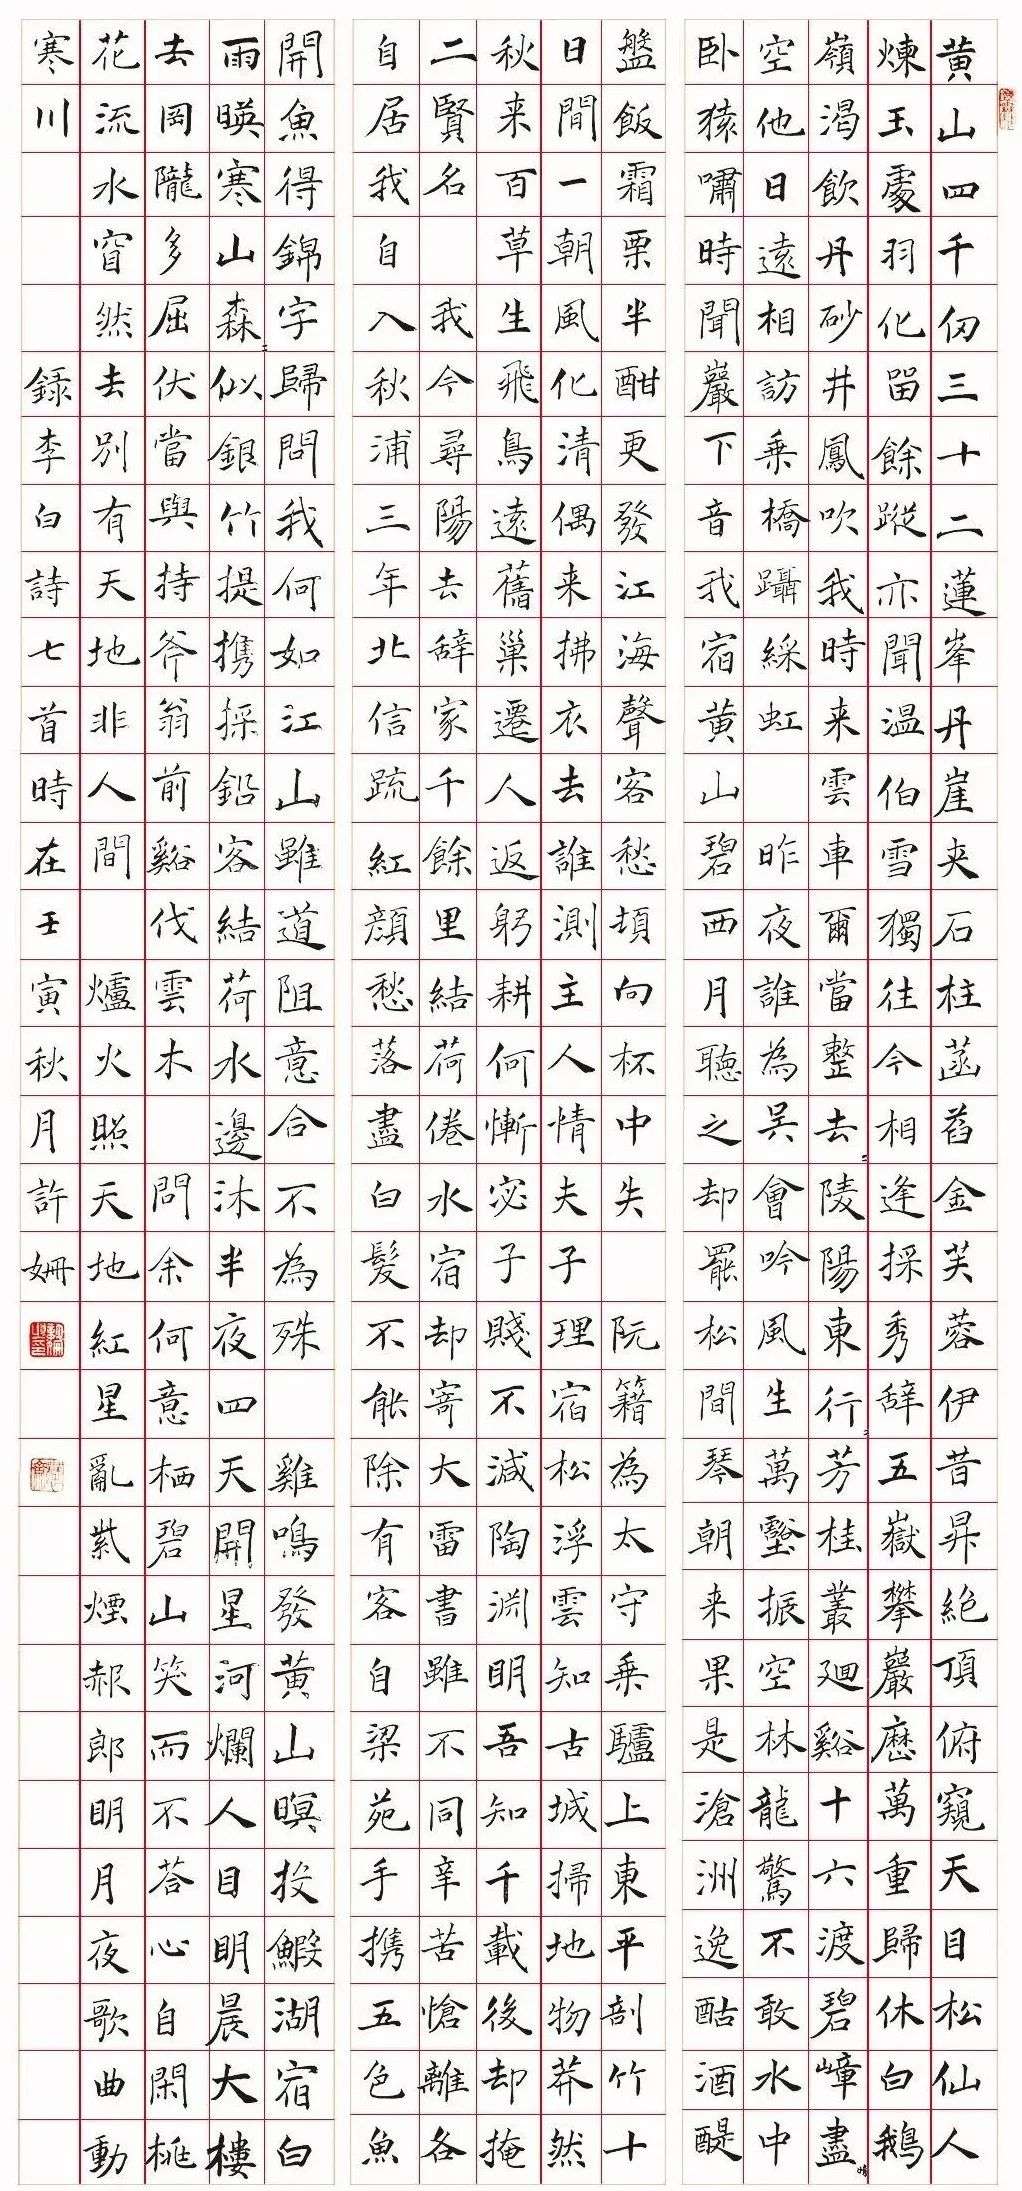 黄山四千仞三十二蓮峯丹崖夾石柱菡萏金芙蓉伊昔昇絕頂俯窺天目松仙人
煉玉處羽化留餘蹤亦聞温伯雪獨往今相逢採秀辞五嶽攀巖歷萬重歸休白鵝
嶺渴飲丹砂井鳳吹我時来雲車爾當整去〻陵陽東行〻芳桂叢廻谿十六渡碧嶂盡晴
空他日遠相訪乗橋躡綵虹 昨夜誰為吴會吟風生萬壑振空林龍驚不敢水中
卧猿嘯時聞巖下音我宿黄山碧西月聴之却罷松間琴朝来果是滄洲逸酤酒醍
盤飯霜栗半酣更發江海聲客愁頓向杯中失 阮籍為太守乗驢上東平剖竹十
日間一朝風化清偶来拂衣去誰測主人情夫子理宿松浮雲知古城掃地物莽然
秋来百草生飛鳥遠舊巢遷人返躬耕何慚宓子賤不減陶淵明吾知千載後却掩
二賢名 我今尋陽去辞家千餘里結荷倦水宿却寄大雷書雖不同辛苦愴離各
自居我自入秋浦三年北信疏紅顔愁落盡白髮不能除有客自梁苑手携五色魚
開魚得錦字歸問我何如江山雖道阻意合不為殊 雞鳴發黄山暝投鰕湖宿白
雨暎寒山森〻似銀竹提携採鉛客結荷水邊沐半夜四天開星河爛人目明晨大樓
去岡隴多屈伏當與持斧翁前谿伐雲木 問余何意栖碧山笑而不荅心自閑桃
花流水窅然去別有天地非人間 爐火照天地紅星亂紫煙赧郎明月夜歌曲動
寒川 録李白詩七首時在壬寅秋月許姍